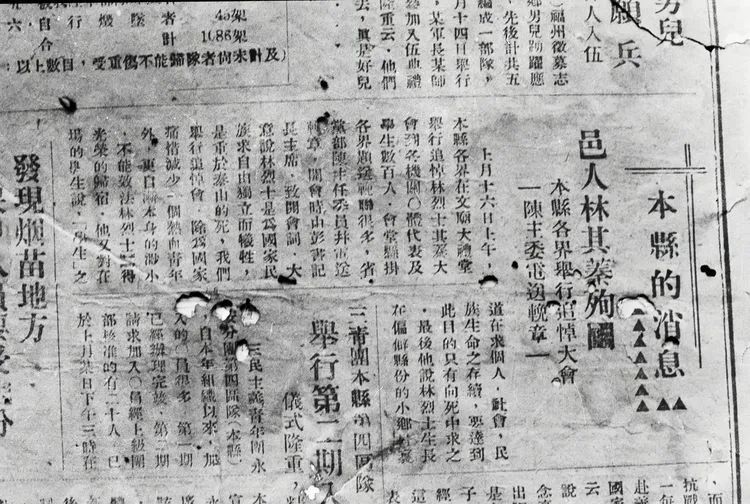 男兒
願兵
人入伍
福州徵募志
鄉男兒踴躍應
，先後計共五
編成一部隊，
月十四日舉行
，某軍長某師
加入伍典禮
隆重云，他們
去，眞是好兒
45架
1086架
者計
受重傷不能歸隊者尚未計及
本縣的消息
邑人林其蓁殉國
本縣各界舉行追悼大會
—陳主委電送輓章—
上月十六日上午，
本縣各界在文廟大禮堂
舉行追悼林烈士其蓁大
會到各機關〇體代表及
學生數百人，會堂縣掛
各界題送輓聯很多，省
黨部陳主任委員幷電送
輓章，開會時由彭書記
長主席，致開會詞，大
意說林烈士是爲國家民
族求自由獨立而犧牲，
是重於泰山的死，我們
舉行追悼會，除爲國家
痛惜減少一個熱血青年
外，更自慚本身的渺小
，不能效法林烈士獲得
光榮的歸宿，他又對在
場的學生說，學生之
道在求個人，社會，民
族生命之存續，要達到
此目的只有向死中求之
，最後他說林烈士生長
在偏僻縣份的小鄉村裏
三青團本縣第四區隊
舉行第二期
儀式隆重，
三民主義青年團永
安分團第四區隊（本縣）
，自本年組織以來，加
入的〇員很多，第一期
已經辦理完竣，第二期
請求加入〇員經上級團
部核准的有二十人，已
於上月某日下午三時在
發現烟苗地方